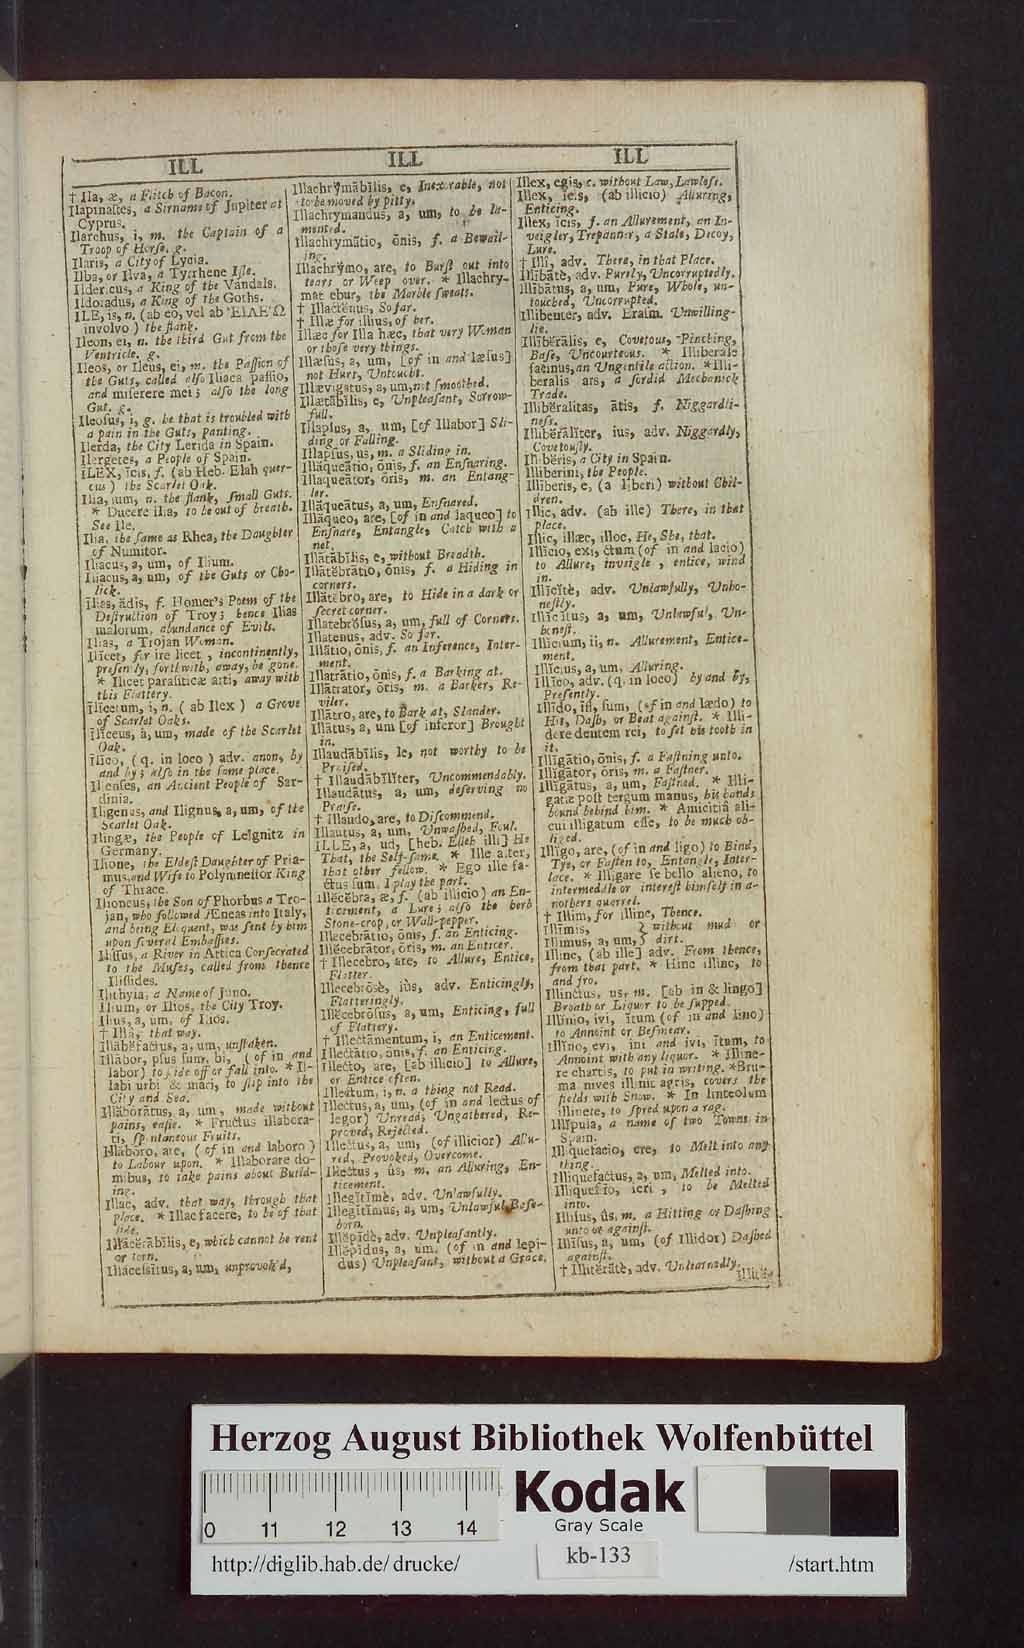 ILL ILL ILL
† Ila, æ, a Flitch of Bacon.
Ilapinaſtes, a Sirname of Jupiter at
Cyprus.
Ilarchus, i, m. the Captain of a
Troop of Horſe. g.
Ilaris, a City of Lycia.
Ilba, or Ilva, a Tyrrhene Iſle.
Ildericus, a King of the Vandals.
Ildoradus, a King of the Goths.
ILE, is, n. (ab eo, vel ab ἘΙΛΕΩ
involvo) the flank.
Ileon, ei, n. the third Gut from the
Ventricle. g.
Ileos, or Ileus, ei, m. the Paſſion of
the Guts, called alſo Iliaca paſſio,
and miſerere mei; alſo the long
Gut. g.
Ileoſus, i, g. he that is troubled with
a pain in the Guts, panting.
Ilerda, the City Lerida in Spain.
Ilergetes, a People of Spain.
ILEX, ĭcis, f. (ab Heb. Elah quer-
cus) the Scarlet Oak.
Ilia, ium, n. the flank, ſmall Guts.
* Ducere ilia, to be out of breath.
See Ile.
Ilia, the ſame as Rhea, the Daughter
of Numitor.
Iliacus, a, um, of Ilium.
Iliacus, a, um, of the Guts or Cho-
lick.
Ilias, ădis, f. Homer's Poem of the
Deſtruction of Troy; hence Ilias
malorum, abundance of Evils.
Ilias, a Trojan Woman.
Ilicet, for ire licet, incontinently,
preſently, forthwith, away, be gone.
* Ilicet paraſiticæ arti, away with
this Flattery.
Ilicetum, i, n. (ab Ilex) a Grove
of Scarlet Oaks.
Iliceus, a, um, made of the Scarlet
Oak.
Ilico, (q. in loco) adv. anon, by
and by; alſo in the ſame place.
Ilienſes, an Ancient People of Sar-
dinia.
Iligenus, and Ilignus, a, um, of the
Scarlet Oak.
Ilingæ, the People of Leignitz in
Germany.
Ilione, the Eldeſt Daughter of Pria-
mus, and Wife to Polymneſtor King
of Thrace.
Ilioneus, the Son of Phorbus a Tro-
jan, who followed Æneas into Italy,
and being Eloquent, was ſent by him
upon ſeveral Embaſſies.
Iliſſus, a River in Attica Conſecrated
to the Muſes, called from thence
Iliſſides.
Ilithyia, a Name of Juno.
Ilium, or Ilios, the City Troy.
Ilius, a, um, of Ilios.
† Illa, that way.
Illăbĕfactus, a, um, unſhaken.
Illābor, pſus ſum, bi, (of in and
labor) to ſlide off or fall into. * Il-
labi urbi & mari, to ſlip into the
City and Sea.
Illăborātus, a, um, made without
pains, eaſie. * Fructus illabora-
ti, ſpontaneous Fruits.
Illăbōro, are, (of in and laboro)
to Labour upon. * Illaborare do-
mibus, to take pains about Build-
ing.
Illac, adv. that way, through that
place. * Illac facere, to be of that
ſide.
Illăcĕrābĭlis, e, which cannot be rent
or torn.
Illaceſſītus, a, um, unprovok'd,
Illachry̆mābĭlis, e, Inexorable, not
to be moved by pitty.
Illachrymandus, a, um, to be la-
mented.
Illachrymātio, ōnis, f. a Bewail-
ing.
Illachry̆mo, are, to Burſt out into
tears or Weep over. * Illachry-
mat ebur, the Marble ſweats.
† Illactenus, So far.
† Illæ for illius, of her.
Illæc for Illa hæc, that very Woman
or thoſe very things.
Illæſus, a, um, [of in and læſus]
not Hurt, Untoucht.
Illævigatus, a, um, not ſmoothed.
Illætābĭlis, e, Unpleaſant, Sorrow-
full.
Illapſus, a, um, [of Illabor] Sli-
ding or Falling.
Illapſus, us, m. a Sliding in.
Illăqueātio, ōnis, f. an Enſnaring.
Illaqueātor, ōris, m. an Entang-
ler.
Illăqueātus, a, um, Enſnared.
Illăqueo, are, [of in and laqueo] to
Enſnare, Entangle, Catch with a
net.
Illātābĭlis, e, without Breadth.
Illătĕbrātio, ōnis, f. a Hiding in
corners.
Illătĕbro, are, to Hide in a dark or
ſecret corner.
Illatebrōſus, a, um, full of Corners.
Illatenus, adv. So far.
Illātio, ōnis, f. an Inference, Inter-
ment.
Illatrātio, ōnis, f. a Barking at.
Illātrator, ōris, m. a Barker, Re-
viler.
Illātro, are, to Bark at, Slander.
Illātus, a, um [of inferor] Brought
in.
Illaudābĭlis, le, not worthy to be
Praiſed.
† Illaudābĭlĭter, Uncommendably.
Illaudātus, a, um, deſerving no
Praiſe.
† Illaudo, are, to Diſcommend.
Illautus, a, um, Unwaſhed, Foul.
ILLE, a, ud, [heb. Elleh illi] He
That, the Self-ſame. * Ille alter,
that other fellow. * Ego ille fa-
ctus ſum, I play the part.
Illĕcĕbra, æ, f. (ab illicio) an En-
ticement, a Lure; alſo the herb
Stone-crop, or Wall-pepper.
Illecebrātio, ōnis, f. an Enticing.
Illĕcebrātor, ōris, m. an Enticer.
† Illecebro, are, to Allure, Entice,
Flatter.
Illecebrōsè, iùs, adv. Enticingly,
Flatteringly.
Illĕcebrōſus, a, um, Enticing, full
of Flattery.
† Illectāmentum, i, an Enticement.
Illectātio, ōnis, f. an Enticing.
Illecto, are, [ab illicio] to Allure,
or Entice often.
Illectum, i, n. a thing not Read.
Illectus, a, um, (of in and lectus of
legor) Unread; Ungathered, Re-
proved, Rejected.
Illectus, a, um, (of illicior) Allu-
red, Provoked, Overcome.
Illectus, ûs, m. an Alluring, En-
ticement.
Illegĭtĭmè, adv. Unlawfully.
Illegitĭmus, a, um, Unlawful, Baſe-
born.
Illĕpĭdè, adv. Unpleaſantly.
Illĕpĭdus, a, um, (of in and lepi-
dus) Unpleaſant, without a Grace.
Illex, egis, c. without Law, Lawleſs.
Illex, ĭcis, (ab illicio) Alluring,
Enticing.
Illex, ĭcis, f. an Allurement, an In-
veigler, Trepanner, a Stale, Decoy,
Lure.
† Illi, adv. There, in that Place.
Illībātè, adv. Purely, Uncorruptedly.
Illībātus, a, um, Pure, Whole, un-
touched, Uncorrupted.
Illibenter, adv. Eraſm. Unwilling-
lie.
Illībĕrālis, e, Covetous, Pinching,
Baſe, Uncourteous. * Illiberale
facinus, an Ungentile action. * Illi-
beralis ars, a ſordid Mechanick
Trade.
Illibĕralitas, ātis, f. Niggardli-
neſs.
Illibĕrālĭter, ius, adv. Niggardly,
Covetouſly.
Illibĕris, a City in Spain.
Illiberini, the People.
Illiberis, e, (a liberi) without Chil-
dren.
Illic, adv. (ab ille) There, in that
place.
Illic, illæc, illoc, He, She, that.
Illĭcio, exi, ctum (of in and lacio)
to Allure, inveigle, entice, wind
in.
Illĭcĭtè, adv. Unlawfully, Unho-
neſtly.
Illĭcĭtus, a, um, Unlawful, Un-
honeſt.
Illicium, ii, n. Allurement, Entice-
ment.
Illĭcius, a, um, Alluring.
Illĭco, adv. (q. in loco) by and by,
Preſently.
Illīdo, ſi, ſum, (of in and lædo) to
Hit, Daſh, or Beat againſt. * Illi-
dere dentem rei, to ſet his tooth in
it.
Illĭgātio, ōnis, f. a Faſtning unto.
Illĭgātor, ōris, m. a Faſtner.
Illĭgātus, a, um, Faſtned. * Illi-
gatæ poſt tergum manus, his hands
bound behind him. * Amicitiâ ali-
cui illigatum eſſe, to be much ob-
liged.
Illĭgo, are, (of in and ligo) to Bind,
Tye, or Faſten to, Entangle, Inter-
lace. * Illigare ſe bello alieno, to
intermeddle or intereſt himſelf in a-
nothers quarrel.
† Illim, for illinc, Thence.
Illimis, } without mud or
Illimus, a, um, } dirt.
Illinc, (ab ille) adv. From thence,
from that part. * Hinc illinc, to
and fro.
Illinctus, us, m. [ab in & lingo]
Broath or Liquor to be ſupped.
Illĭnio, ivi, ītum (of in and lino)
to Annoint or Beſmear.
Illĭno, evi, ini and ivi, ĭtum, to
Annoint with any liquor. * Illine-
re chartis, to put in writing. * Bru-
ma nives illinit agris, covers the
fields with Snow. * In linteolum
illinere, to ſpred upon a rag.
Illĭpula, a name of two Towns in
Spain.
Illiquefacio, ere, to Melt into any
thing.
Illiquefactus, a, um, Melted into.
Illiquefio, ieri, to be Melted
into.
Illiſus, ûs, m. a Hitting or Daſhing
unto or againſt.
Illiſus, a, um, (of Illidor) Daſhed
againſt.
† Illitĕrātè, adv. Unlearnedly.
Herzog August Bibliothek Wolfenbüttel
0 11 12 13 14
Kodak
Gray Scale
kb-133
http://diglib.hab.de/ drucke/ /start.htm